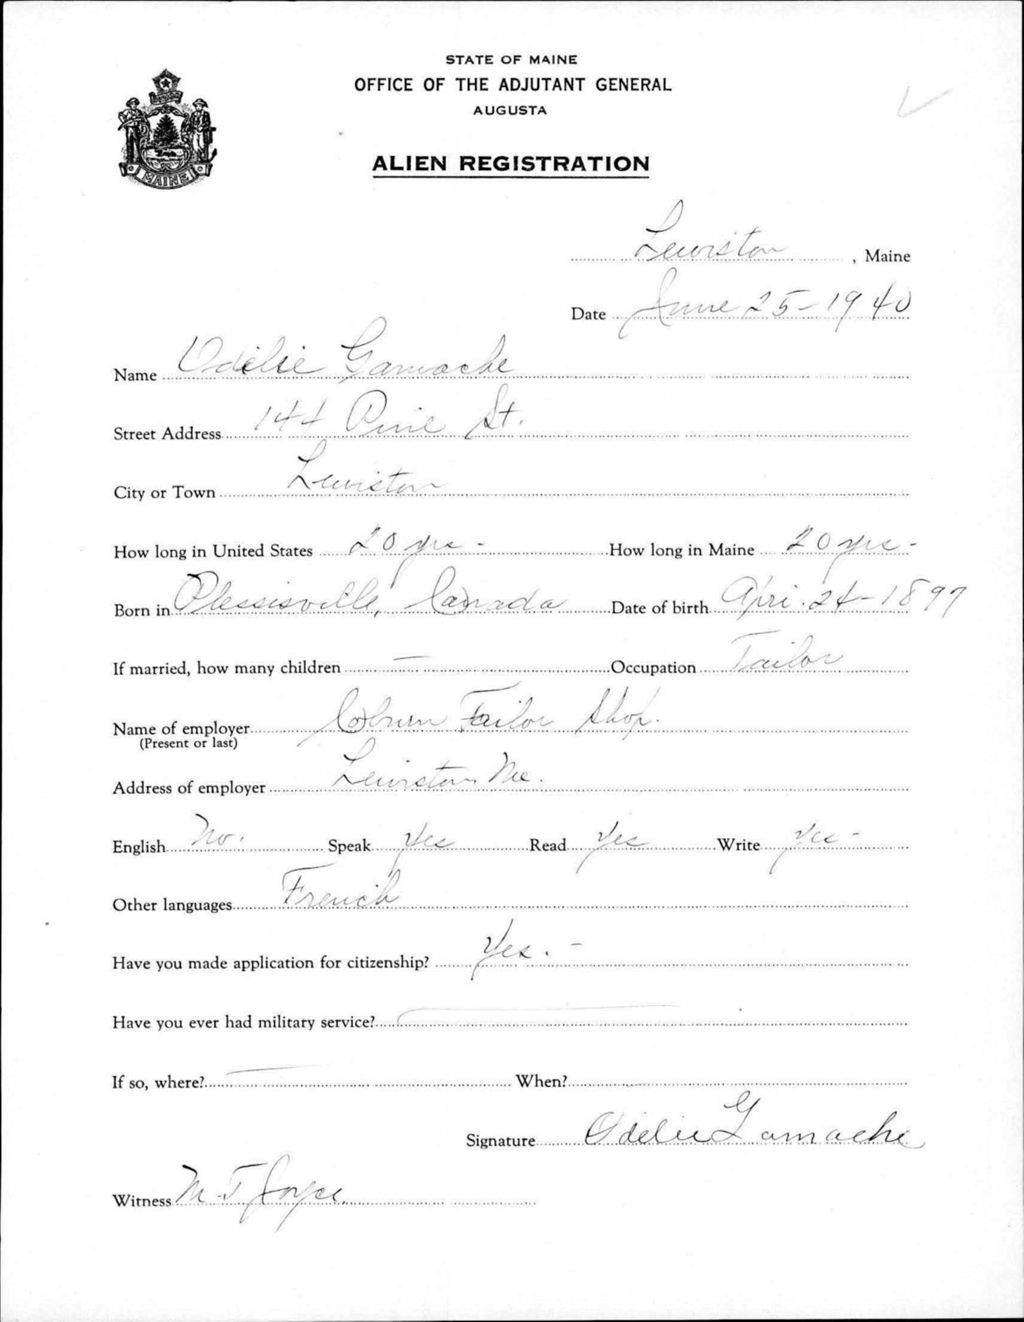 STATE OF MAINE
OFFICE OF THE ADJUTANT GENERAL
AUGUSTA
ALIEN REGISTRATION
MAINE
Lewiston, Maine
Date June 25-1940
Name Odelie Gamache
Street Address 144 Pine St.
City or Town Lewiston
How long in United States 20 yrs - How long in Maine 20 yrs -
Born in Plessisville, Canada Date of birth Apri. 24-1897
If married, how many children — Occupation Tailor
Name of employer Coburn Tailor Shop.
(Present or last)
Address of employer Lewiston Me.
English No. Speak Yes Read Yes Write Yes -
Other languages French
Have you made application for citizenship? Yes. -
Have you ever had military service? —
If so, where? — When?
Signature Odelie Gamache
Witness M. T. Joyce